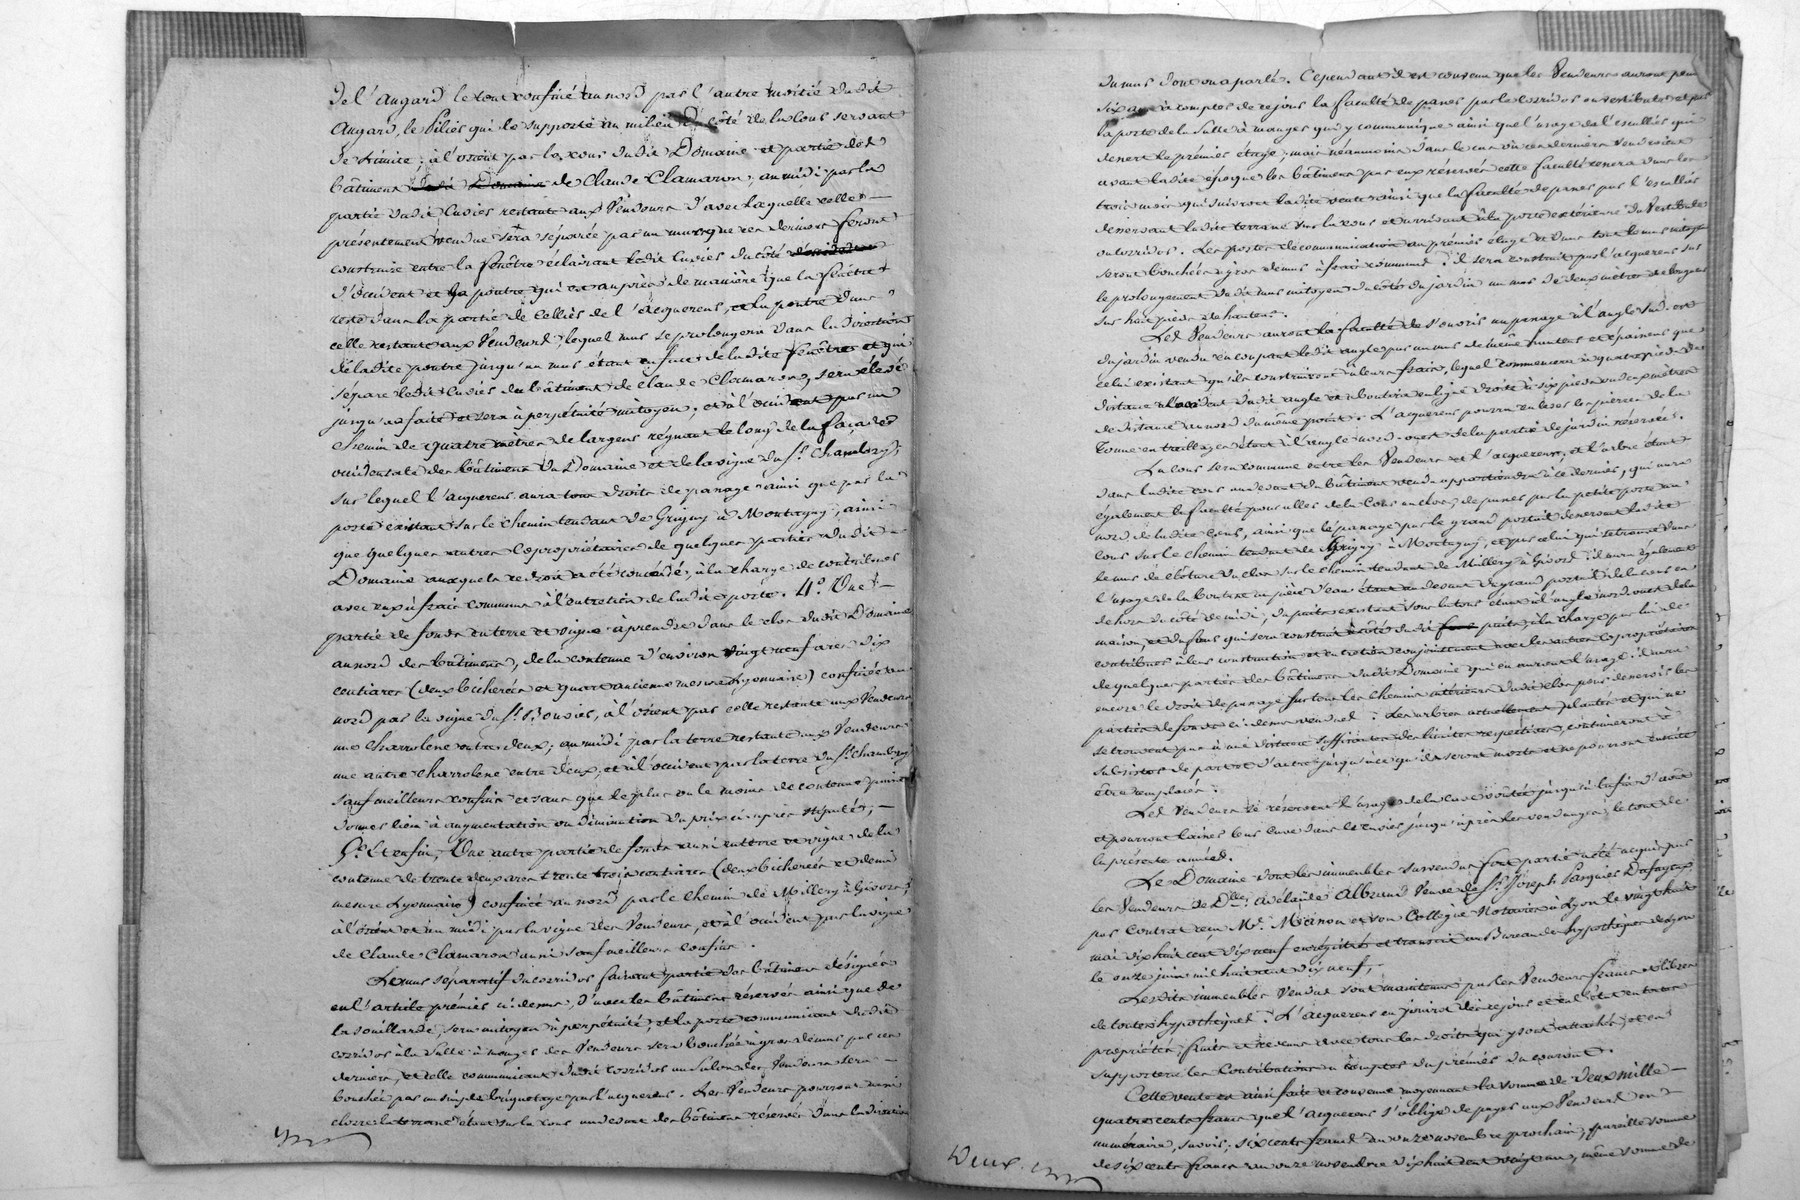 de l'angard le tout confiné au nord par l'autre moitié dudit
angard, le pilier qui le supporte au milieu du côté de la cour servant
de limite; à l'orient par la cour dudit Domaine et partie des
bâtimens de Claude Clamaron; au midi par la
partie dudit cuvier restante aux Vendeurs d'avec laquelle celle
présentement vendue sera séparée par un mur que ces derniers feront
construire entre la fenêtre éclairant ledit cuvier du côté
d'occident et la poutre qui est auprès de manière que la fenêtre
reste dans la partie de cellier de l'acquereur, et la poutre dans
celle restante aux Vendeurs, lequel mur se prolongera dans la direction
de ladite poutre jusqu'au mur étant en face de ladite fenêtre et qui
sépare ledit cuvier du bâtiment de Claude Clamaron, sera élevé
jusqu'au faîte et sera à perpétuité mitoyen; et à l'occident par un
chemin de quatre mètres de largeur régnant le long de la façade
occidentale des bâtimens du Domaine et de la vigne du Sr. Chambry,
sur lequel l'acquereur aura tous droits de passage ainsi que par la
porte existant sur le chemin tendant de Grigny à Montagny, ainsi
que quelques autres copropriétaires de quelques parties dudit
Domaine auxquels ce droit a été concédé, à la charge de contribuer
avec eux à frais communs à l'entretien de ladite porte. 4°. Une
partie de fonds en terre et vigne à prendre dans le clos dudit Domaine
au nord des bâtimens, de la contenue d'environ vingt neuf ares dix
centiares (deux bicherées et quart ancienne mesure Lyonnaise) confinée au
nord par la vigne du Sr. Bouvier, à l'orient par celle restante aux Vendeurs
une charrolene entre deux; au midi par la terre restante aux Vendeurs
une autre charrolene entre deux; et à l'occident par la terre du Sr. Chambry
sauf meilleurs confins et sans que le plus ou le moins de contenue puisse
donner lieu à augmentation ou diminution du prix ci-après stipulé;
5°. Et enfin, Une autre partie de fonds aussi en terre et vigne de la
contenue de trente deux ares trente trois centiares (deux bicherées et demi
mesure Lyonnaise) confinée au nord par le chemin de Millery à Givors;
à l'orient et au midi par la vigne des Vendeurs, et à l'occident par la vigne
de Claude Clamaron aussi sauf meilleurs confins.
Le mur séparatif du corridor faisant partie des bâtimens désignés
en l'article premier ci-dessus, d'avec les bâtimens réservés ainsi que de
la souillarde sera mitoyen à perpétuité, et la porte communicant dudit
corridor à la salle à manger des Vendeurs sera bouchée à gros de mur par ces
derniers, et celle communicant dudit corridor au salon des Vendeurs sera
bouchée par un simple briquetage par l'acquereur. Les Vendeurs pourront aussi
clorre la terrasse étant sur la cour au devant des bâtimens réservés dans la direction
du mur dont on a parlé. Cependant il est convenu que les Vendeurs auront pendant
six ans à compter de ce jour la faculté de passer par le corridor ou vestibule et par
la porte de la salle à manger qui y communique ainsi que l'usage de l'escalier qui
dessert le premier étage; mais néanmoins dans le cas où ces derniers vendraient
avant ladite époque les bâtimens par eux réservés cette faculté cessera dans les
trois mois qui suivront ladite vente ainsi que la faculté de passer par l'escalier
desservant ladite terrasse sur la cour et arrivant à la porte extérieure du Vestibule
ou corridor. Les portes de communication au premier étage et dans tout le mur mitoyen
seront bouchées à gros de mur à frais communs. Il sera construit par l'acquereur sur
le prolongement dudit mur mitoyen du côté du jardin un mur de deux mètres de longueur
sur huit pieds de hauteur.
Les Vendeurs auront la faculté de s'ouvrir un passage à l'angle sud-est
du jardin vendu en coupant ledit angle par un mur de même hauteur et épaisseur que
celui existant qu'ils construiront à leurs frais, lequel commencera à quatre pieds de
distance à l'occident dudit angle et aboutira en ligne droite à six pieds ou deux mètres
de distance au nord du même point. L'acquereur pourra enlever les pierres de la
tonne en treillage étant à l'angle nord-ouest de la partie de jardin réservée.
La cour sera commune entre les Vendeurs et l'acquereur, et l'arbre étant
dans ladite cour au devant du bâtiment vendu appartiendra à ce dernier, qui aura
également la faculté pour aller de la cour au clos, de passer par la petite porte au
nord de ladite cour, ainsi que le passage par le grand portail desservant ladite
cour sur le chemin tendant de Grigny à Montagny, et par celui qui se trouve dans
le mur de clôture du clos sur le chemin tendant de Millery à Givors; il aura également
l'usage de la boutasse ou pièce d'eau étant au devant du grand portail de la cour en
dehors du côté de midi; du puits existant sous la tour étant à l'angle nord-ouest de la
maison, et du four qui sera construit à côté dudit puits, à la charge par lui de
contribuer à leur construction et entretien conjointement avec les autres copropriétaires
de quelques parties des bâtimens dudit Domaine qui en auront l'usage: il aura
encore le droit de passage sur tous les chemins intérieurs dudit clos pour desservir les
parties de fonds ci-dessus vendues. Les arbres actuellement plantés et qui ne
se trouvent pas à une distance suffisante des limites respectives, continueront à
subsister de part et d'autre jusqu'à ce qu'ils seront morts et ne pourront ensuite
être remplacés.
Les Vendeurs se réservent l'usage de la cave voûtée jusqu'à la fin d'août
et pourront laisser leur cuve dans le cuvier jusqu'après les vendanges, le tout de
la présente année.
Le Domaine dont les immeubles susvendus font partie a été acquis par
les Vendeurs de Dlle. Adélaïde Albrand Veuve de Sr. Joseph Parquier Dafayfax
par contrat reçu Me. Mainon et son Collègue Notaires à Lyon le vingt huit
mai dix huit cent dix neuf enregistré et transcrit au Bureau des hypothèques de Lyon
le onze juin mil huit cent dix neuf.
Lesdits immeubles vendus sont maintenus par les Vendeurs francs et libres
de toutes hypothèques. L'acquereur en jouira dès ce jour et en l'état en toute
propriété, fruits et revenus avec tous les droits qui y sont attachés, et en
supportera les contributions à compter du premier du courant.
Cette vente est ainsi faite et convenue moyennant la somme de deux mille
quatre cents francs que l'acquereur s'oblige de payer aux Vendeurs en
numéraire, savoir; six cents francs au onze novembre prochain, pareille somme
de six cents francs au onze novembre dix huit cent vingt un, même somme de
Deux.